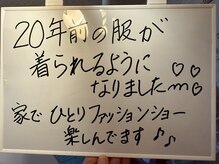 20年前の服が
着られるように
なりました♡♡
家でひとりファッションショー
楽しんでます♪♪